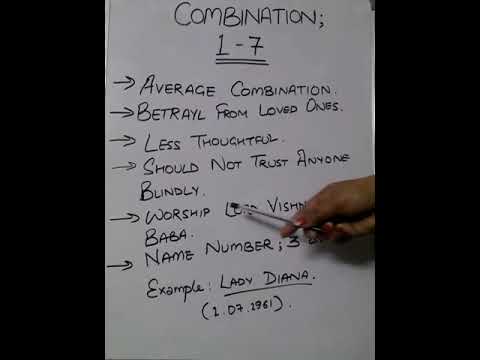 COMBINATION;
1-7
→ AVERAGE COMBINATION.
→ BETRAYL FROM LOVED ONES.
→ LESS THOUGHTFUL.
→ SHOULD NOT TRUST ANYONE
BLINDLY.
→ WORSHIP LORD
BABA.
→ NAME NUMBER; 3
Example: LADY DIANA.
(1.07.1961).